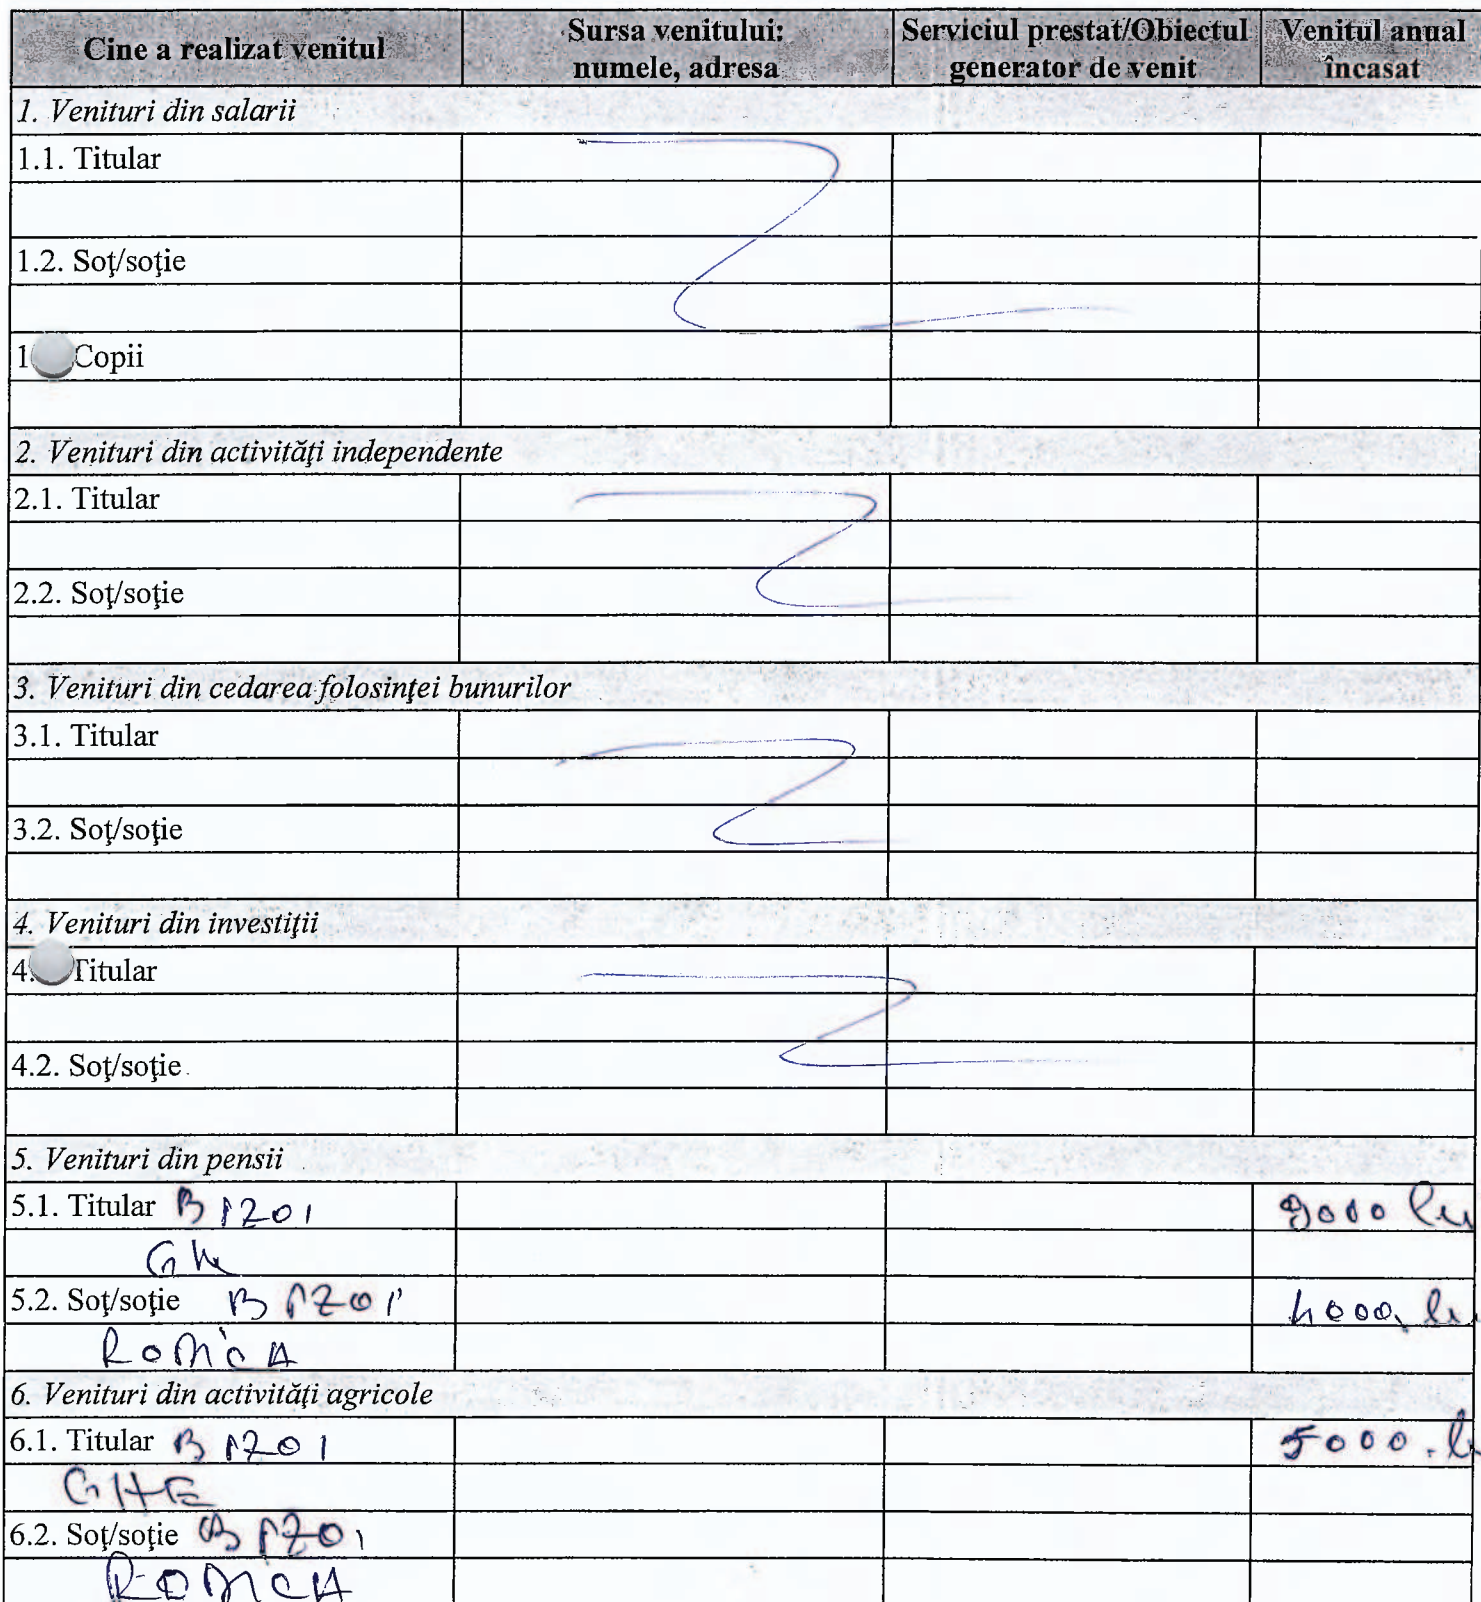 Cine a realizat venitul
Sursa venitului:
numele, adresa
Serviciul prestat/Obiectul
generator de venit
Venitul anual
încasat
1. Venituri din salarii
1.1. Titular
1.2. Soţ/soţie
1 Copii
2. Venituri din activităţi independente
2.1. Titular
2.2. Soţ/soţie
3. Venituri din cedarea folosinţei bunurilor
3.1. Titular
3.2. Soţ/soţie
4. Venituri din investiţii
4. Titular
4.2. Soţ/soţie
5. Venituri din pensii
5.1. Titular BIZOI
9000 lei
GH
5.2. Soţ/soţie BIZOI
4000. lei
ROMICA
6. Venituri din activităţi agricole
6.1. Titular BIZOI
5000. l
GHE
6.2. Soţ/soţie BIZOI
ROMICA